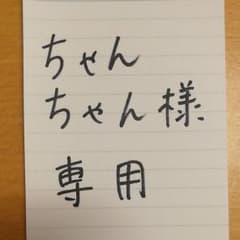 ちゃん
ちゃん様
専用